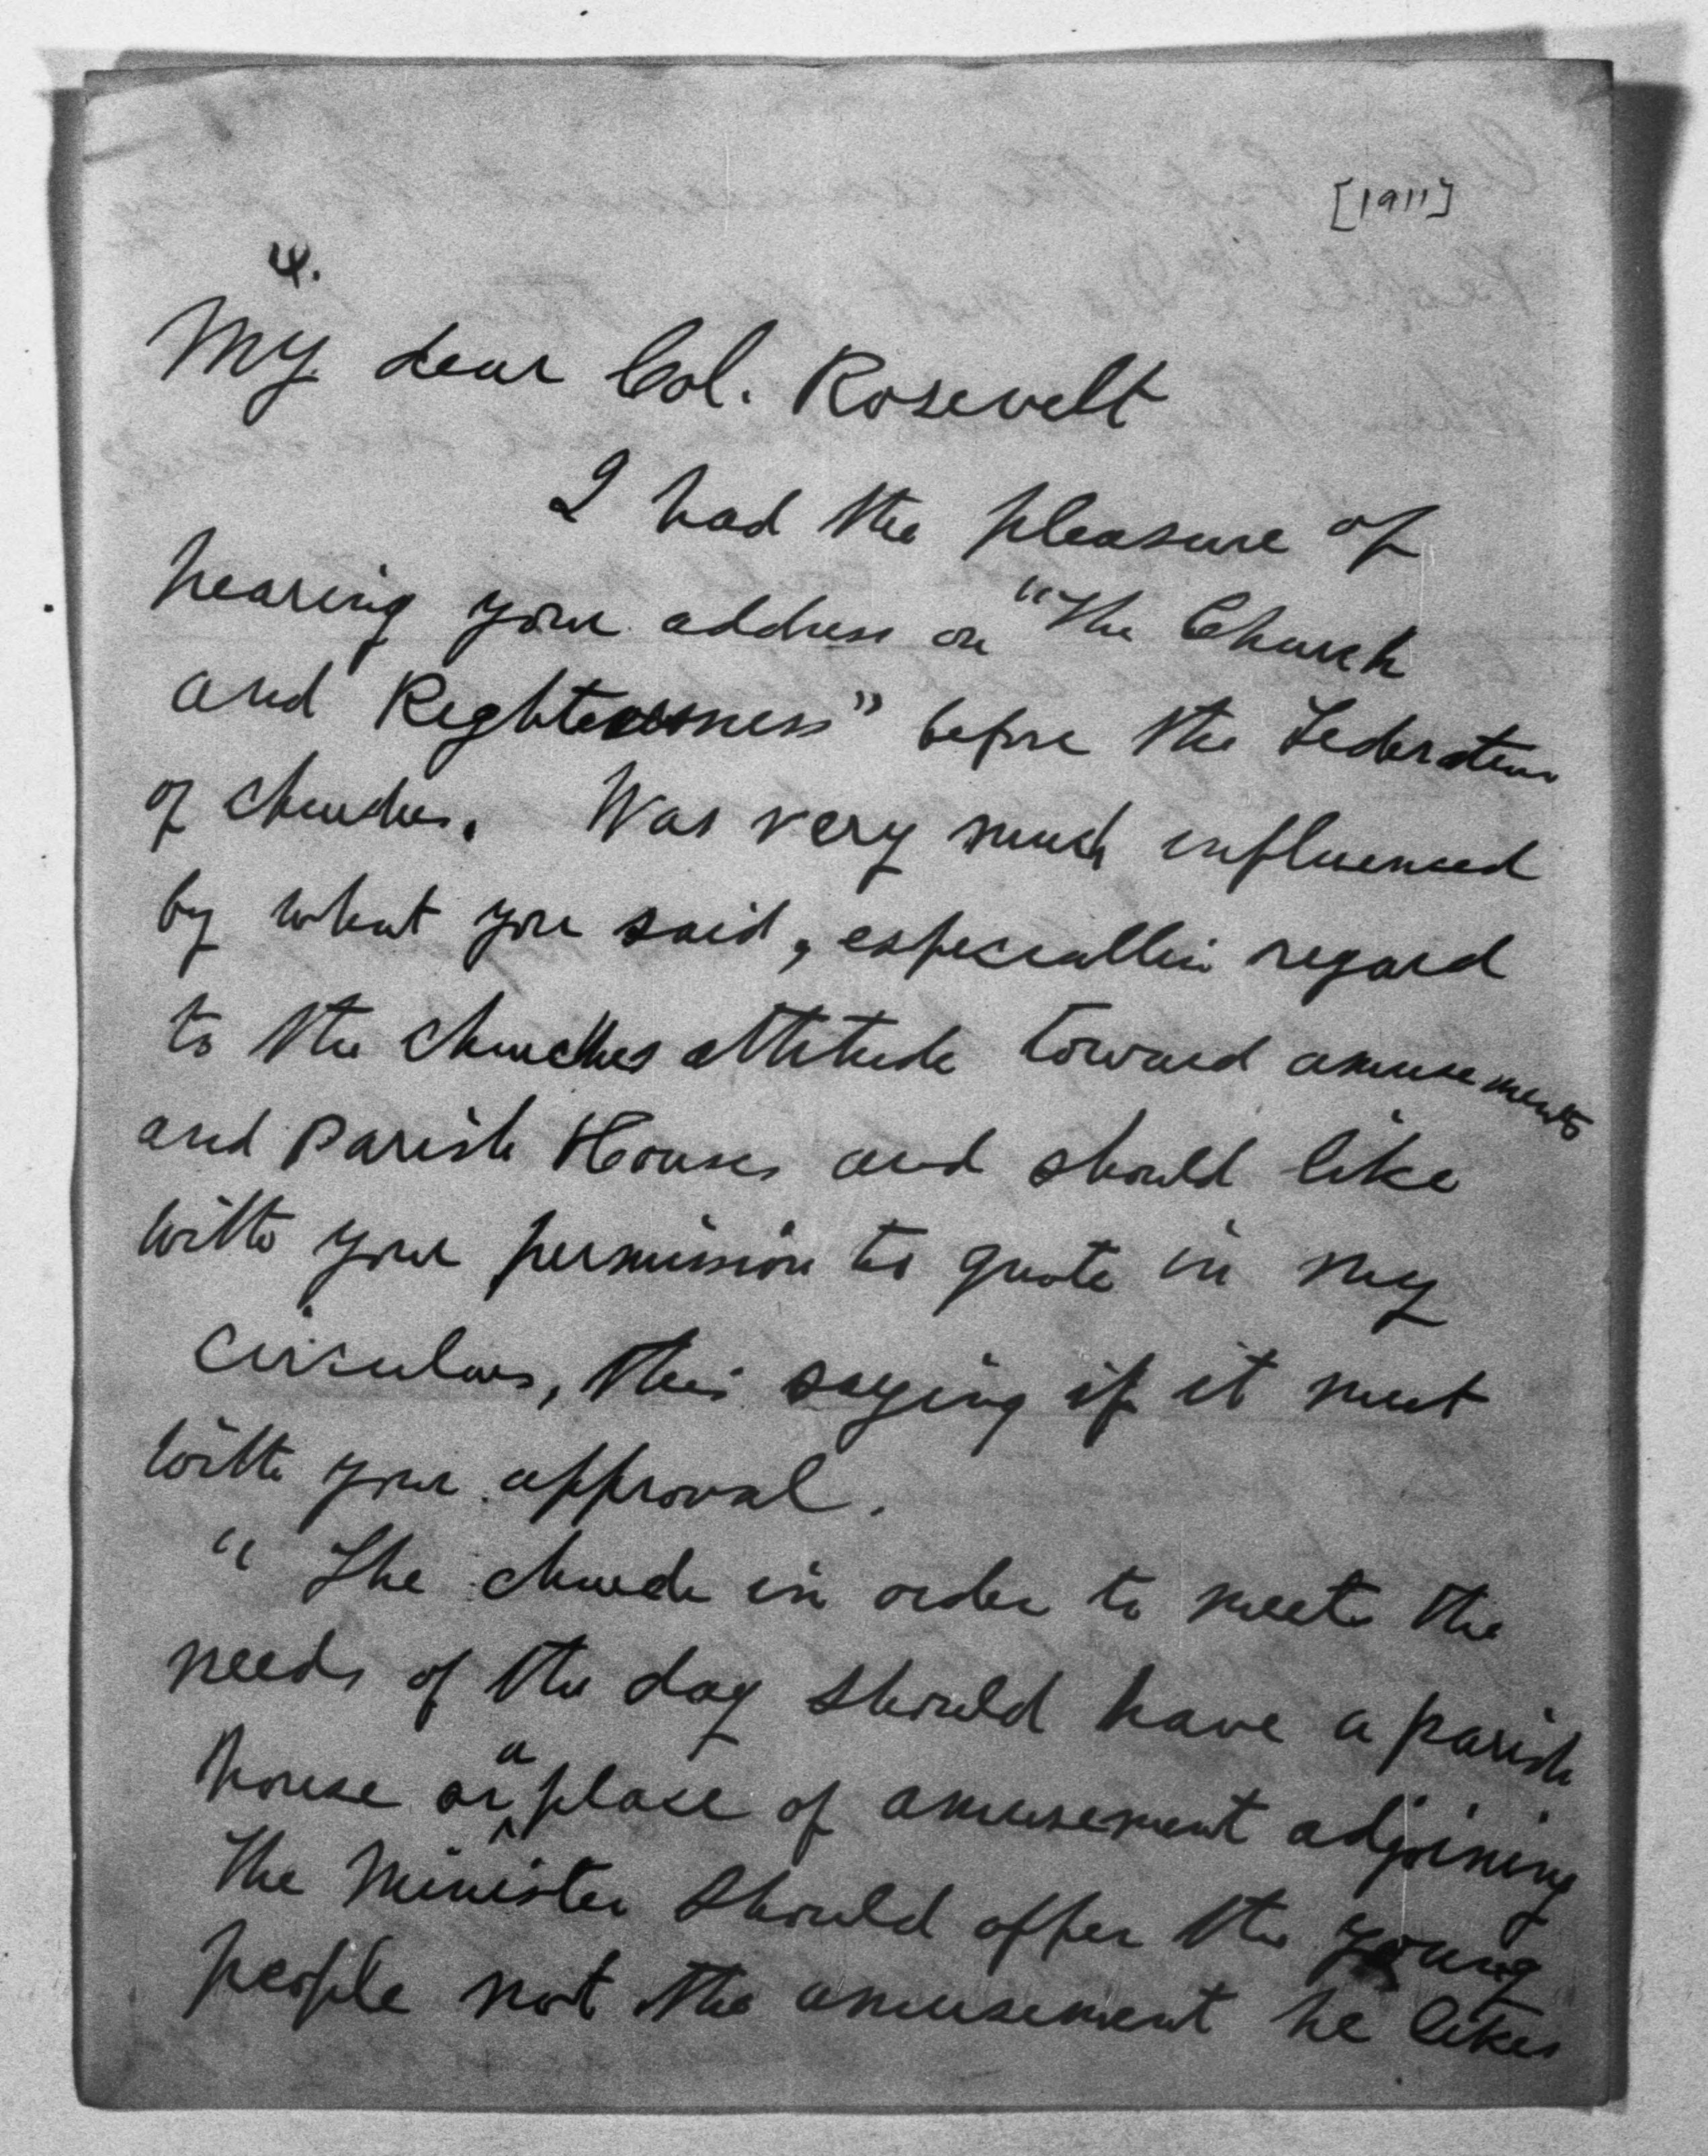 [1911]
4.
My dear Col. Rosevelt
I had the pleasure of
hearing your address on "The Church
and Righteousness" before the Federation
of churches. Was very much influenced
by what you said, especiallin regard
to the churches attitude toward amusements
and Parish Houses and should like
with your permission to quote in my
circulars, this saying if it meet
with your approval.
"The church in order to meet the
needs of the day should have a parish
house or a place of amusement adjoining
The Minister should offer the young
people not the amusement he likes